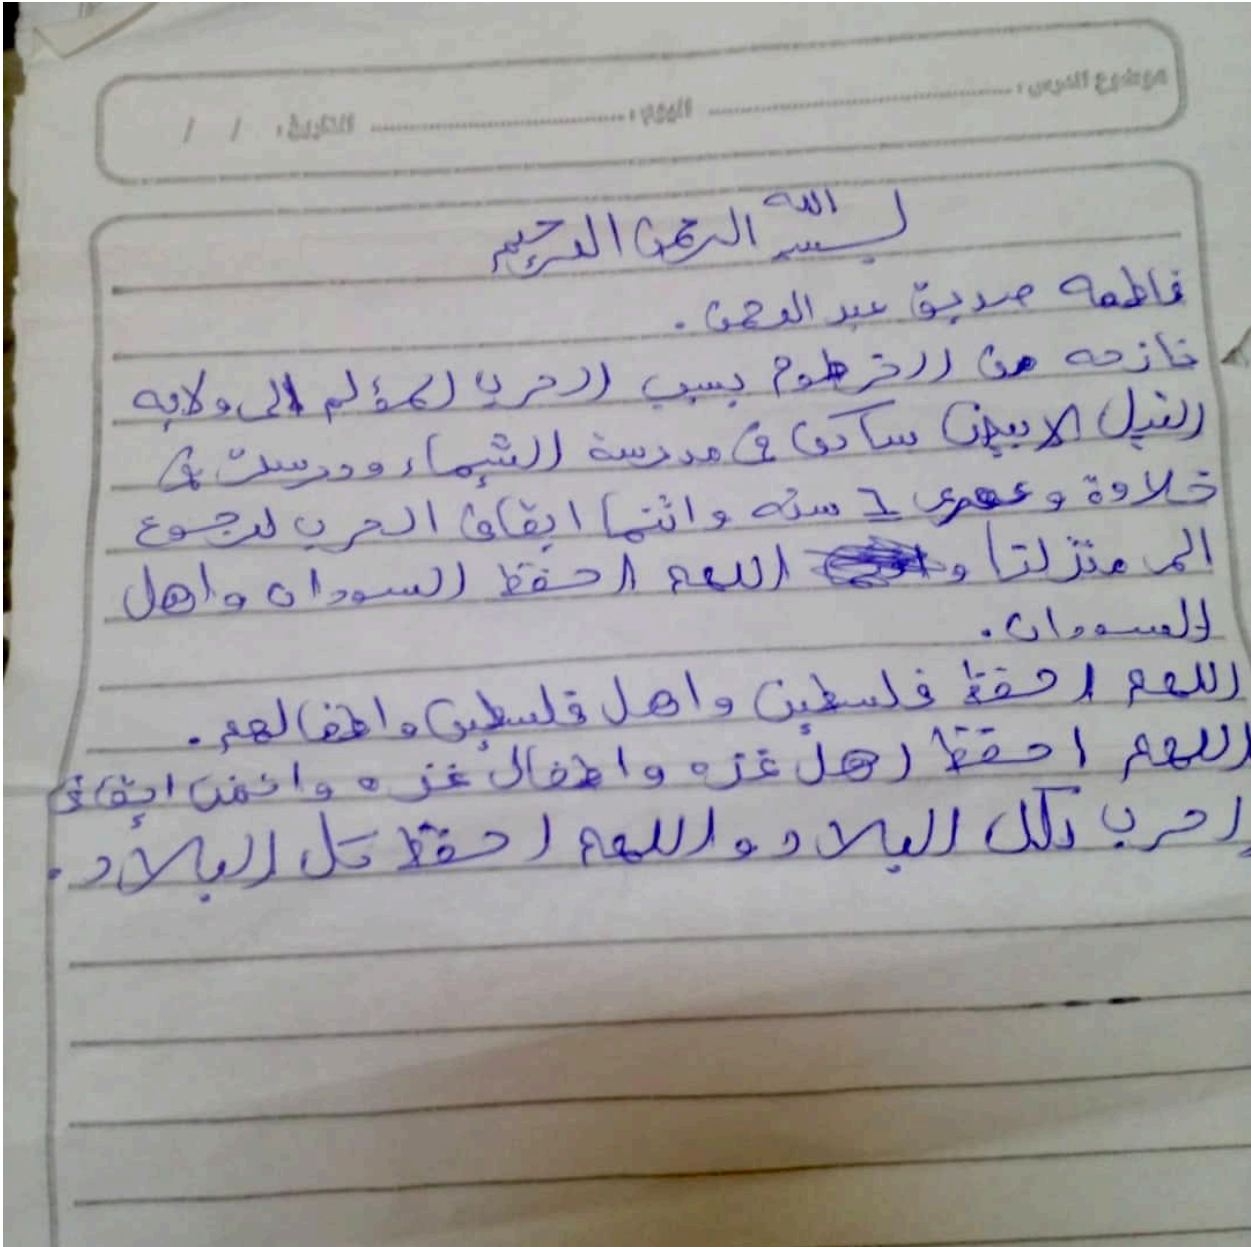 بسم الله الرحمن الرحيم
فاطمه صديق عبد الرحمن .
نازحه من الخرطوم بسبب الحرب المؤلم الى ولايه
النيل الابيض ساكن في مدرسة الشيماء ودرست في
خلاوة و عمري سنه واتنما ايقاف الحرب لرجوع
الى منزلنا و اللهم احفظ السودان واهل
السودان .
اللهم احفظ فلسطين واهل فلسطين واطفالهم .
اللهم احفظ اهل غزه واطفال غزه واتمن ايقاف
احرب لكل البلاد و اللهم احفظ كل البلاد .